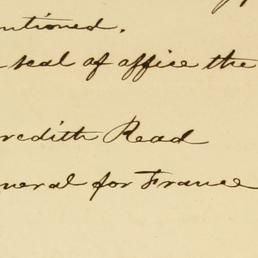 entioned.
seal of office the
redith Read
neral for France